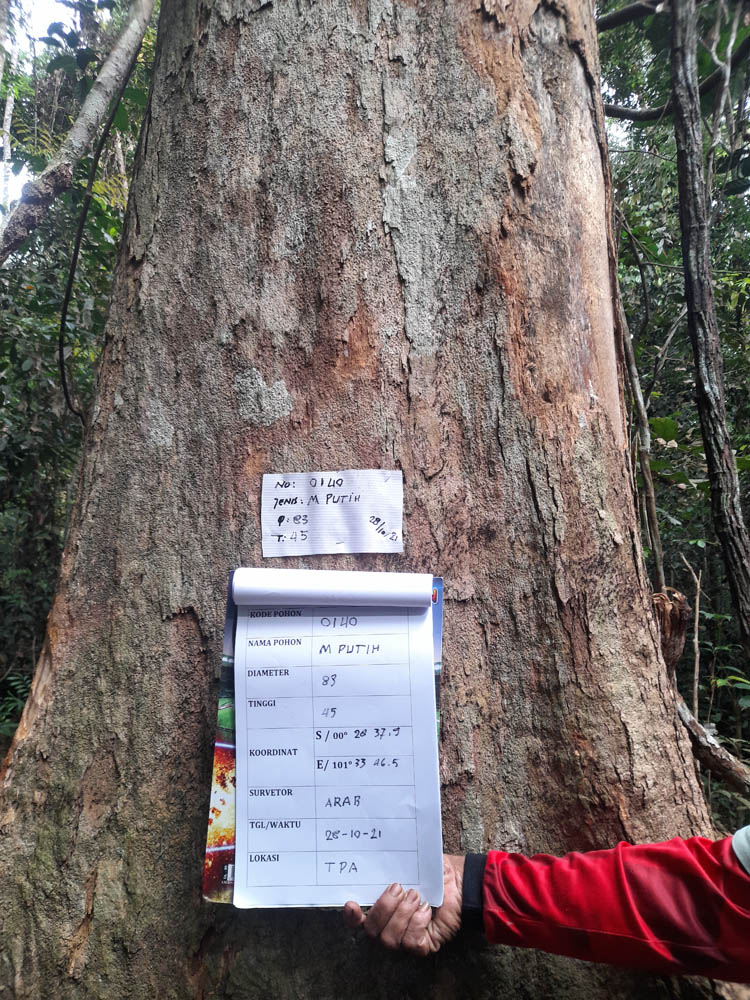 NO: 0140
JENIS: M PUTIH
φ: 83
T: 45
28/10/21
KODE POHON 0140
NAMA POHON M PUTIH
DIAMETER 83
TINGGI 45
KOORDINAT S / 00° 28 37.9
E/ 101° 33 46.5
SURVETOR ARAB
TGL/WAKTU 28-10-21
LOKASI TPA